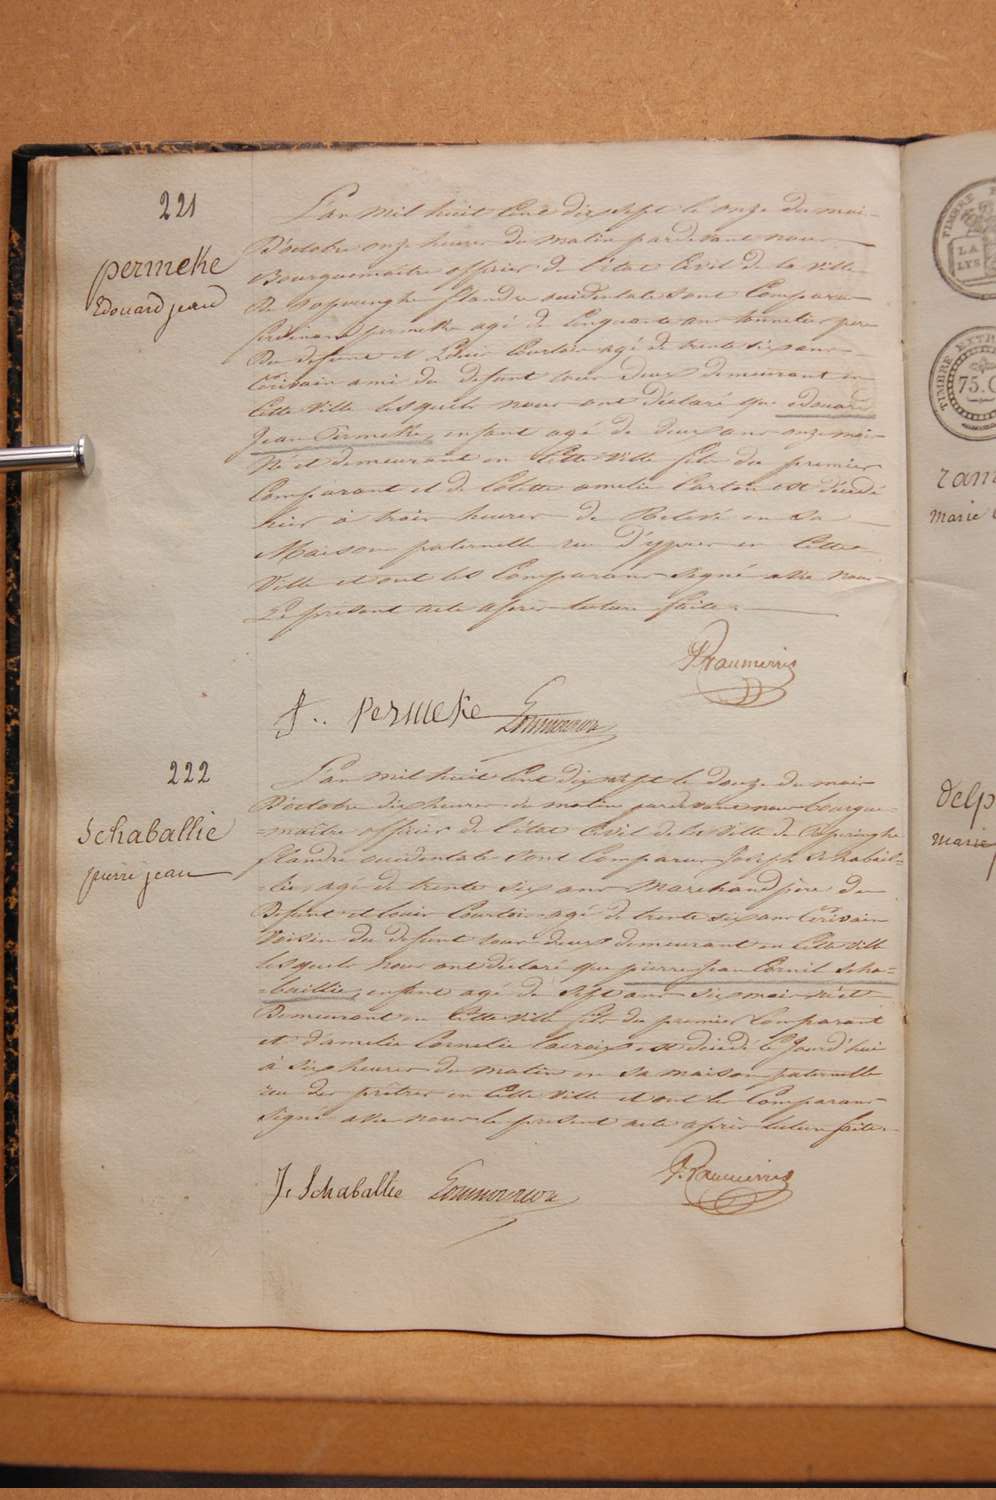 221
permeke
Edouard jean
L'an mil huit Cent dix sept le onze du mois
D'octobre onze heures du matin pardevant nous
Bourguemaitre officier de l'état Civil de la ville
De Poperinghe flandre occidentale sont Comparu
ferdinand permeke agé de Cinquante ans tonnelier pere
Du defunt et Louis Courtois agé de trente six ans
Ecrivain ami du defunt tous deux demeurant en
Cette Ville lesquels nous ont déclaré que edouard
Jean Permeke, enfant agé de deux ans onze mois
Né et demeurant en Cette Ville fils du premier
Comparant et de Colette amelie Carton est décédé
hier à trois heures de Relevé en sa
Maison paternelle rue D'ypres en Cette
Ville et ont les Comparans signé avec nous
Le présent acte après lecture faite.
F.. Permeke
222
Schaballie
pierre jean
L'an mil huit Cent dix sept le douze du mois
D'octobre dix heures du matin pardevant nous bourgue-
-maître officier de l'état Civil de la Ville de Poperinghe
flandre occidentale sont Comparus Joseph Schabal-
-lie, agé de trente six ans Marchand père du
Defunt et louis Courtois agé de trente six ans Ecrivain
Voisin du defunt tous deux demeurant en Cette Ville
lesquels nous ont déclaré que pierre Jean Cornil Scha-
-baillie, enfant agé de Sept ans six mois né et
Demeurant en Cette Ville fils du premier Comparant
et d'amelie Cornelie Lacroix est décédé ce Jourd'hui
à Six heures du matin en sa maison paternelle
rue des prêtres en Cette Ville et ont les Comparans
Signé avec nous le present acte après lecture faite.
J. Schaballie
TIMBRE
LA
LYS
TIMBRE EXTR
75.C
ram
Marie
delp
Marie